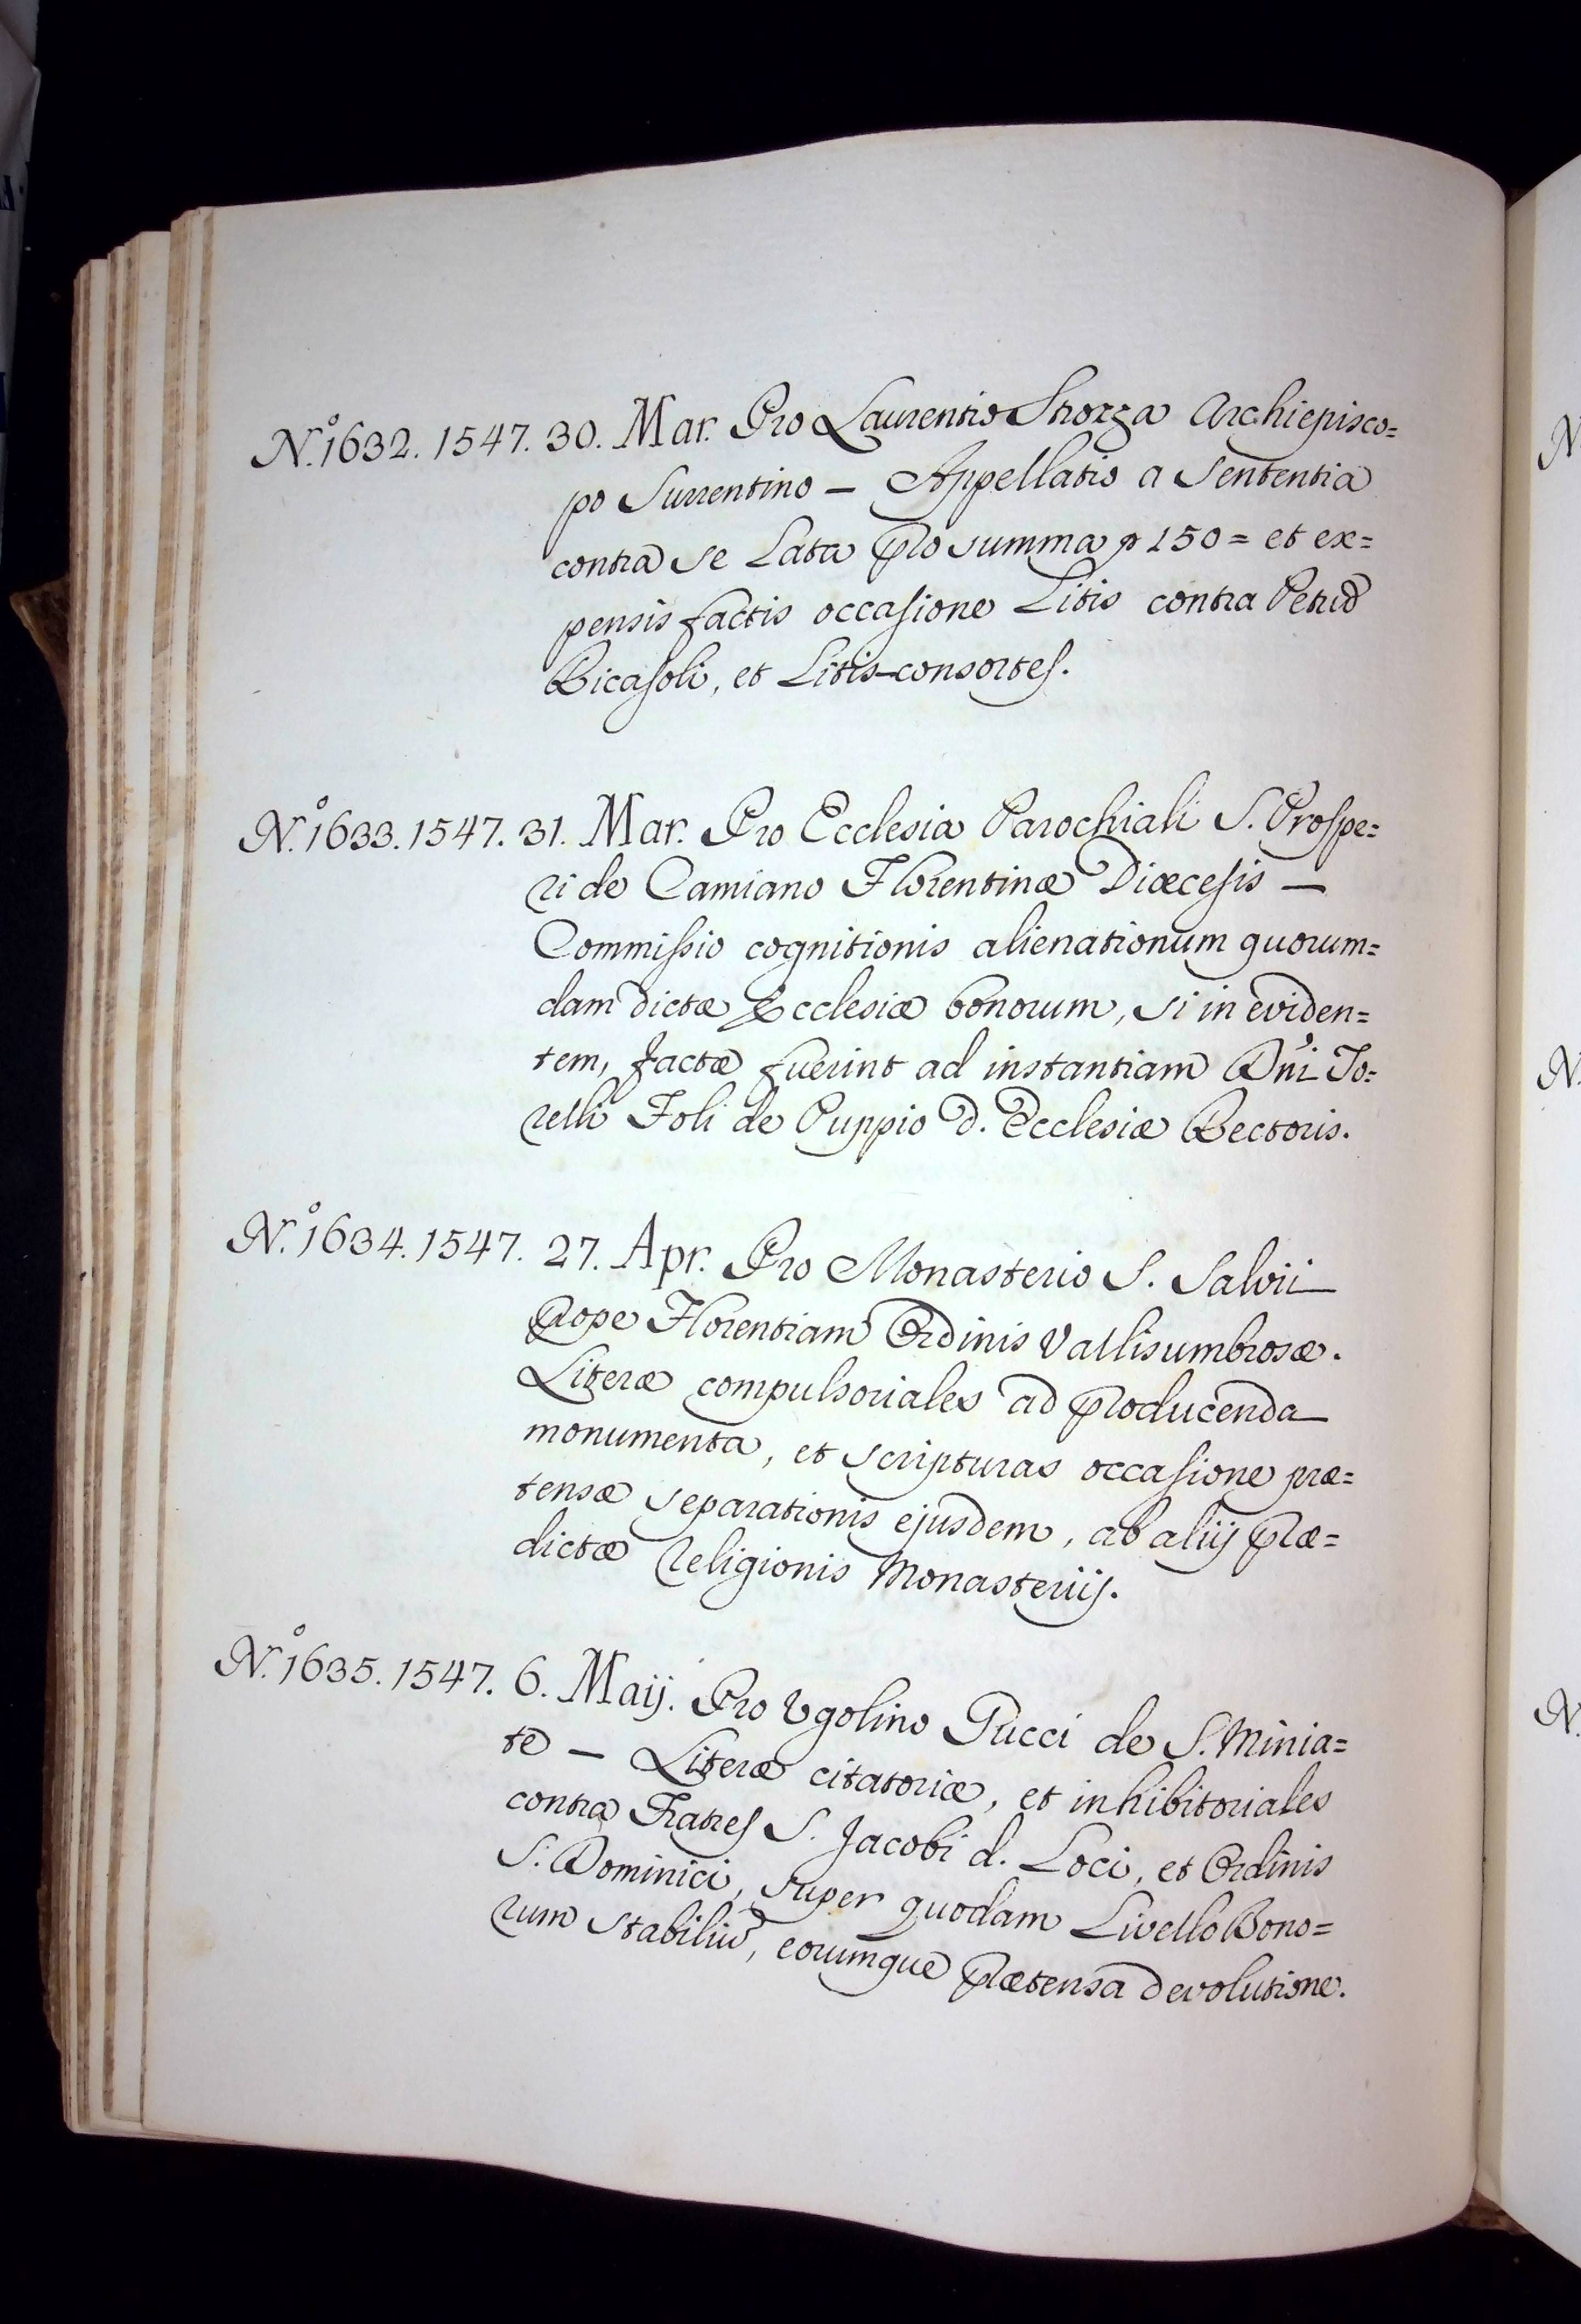 N.º 1632. 1547. 30. Mar. Pro Laurentio Strozza Archiepisco=
po Surrentino — Appellatio a Sententia
contra se Lata pro summa 150 = et ex=
pensis factis occasione Litis contra Petrũ
Ricasoli, et Litis-consortes.
N.º 1633. 1547. 31. Mar. Pro Ecclesia Parochiali S. Prospe=
ri de Camiano Florentinæ Diœcesis —
Commissio cognitionis alienationum quorum=
dam dictæ Ecclesiæ bonorum, si in eviden=
tem, factæ fuerint ad instantiam Dñi To=
relli Foli de Puppio d. Ecclesiæ Rectoris.
N.º 1634. 1547. 27. Apr. Pro Monasterio S. Salvii
prope Florentiam Ordinis Vallisumbrosæ.
Literæ compulsoriales ad producenda
monumenta, et scripturas occasione præ=
tensæ separationis ejusdem, ab alijs præ=
dictæ religionis Monasterijs.
N.º 1635. 1547. 6. Maij. Pro Ugolino Pucci de S. Minia=
te — Literæ citatoriæ, et inhibitoriales
contra Fratres S. Jacobi d. Loci, et Ordinis
S. Dominici, super quodam Livello Bono=
rum stabiliũ, eorumque prætensa devolutione.
N
N.
N.